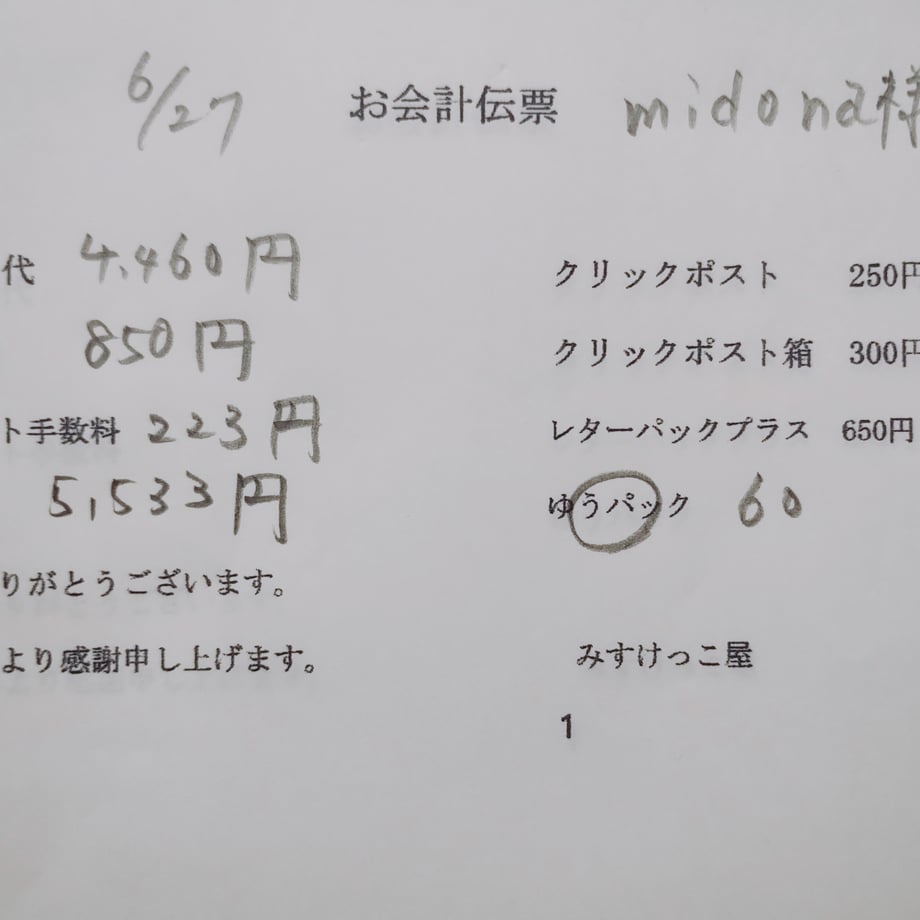 6/27 お会計伝票 midona様
代 4,460円 クリックポスト 250円
850円 クリックポスト箱 300円
ト手数料 223円 レターパックプラス 650円
5,533円 ゆうパック 60
りがとうございます。
より感謝申し上げます。 みすけっこ屋
1